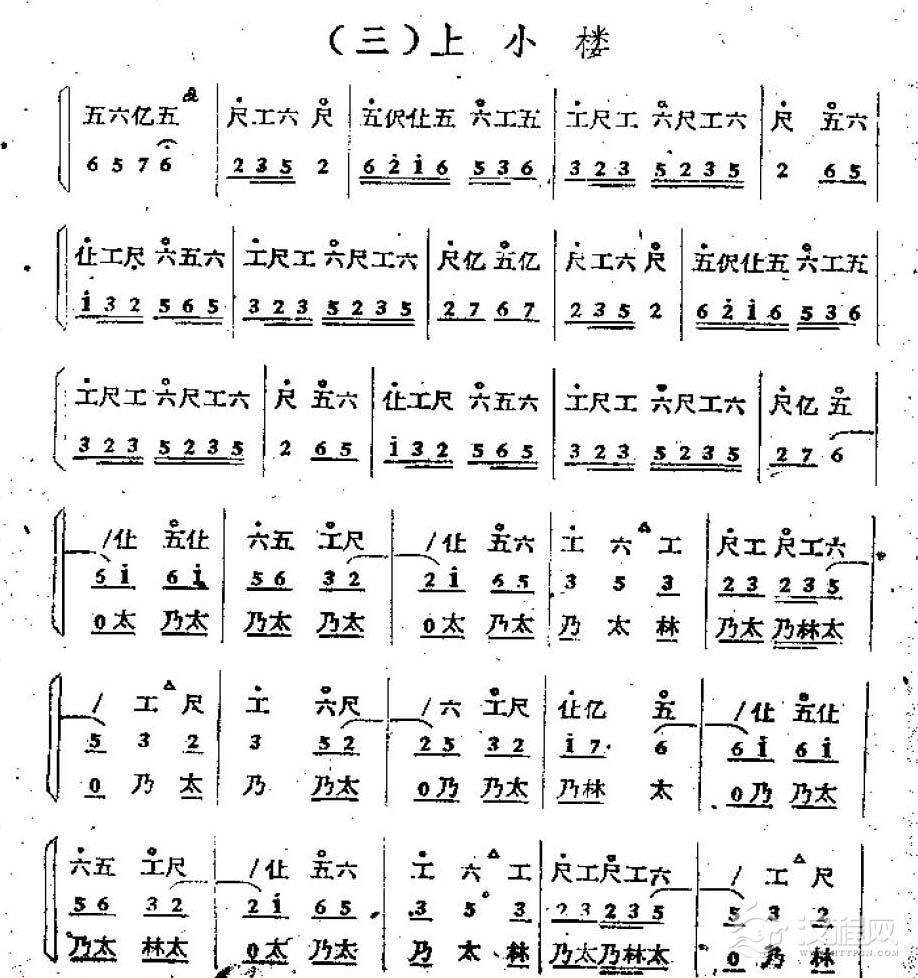 （三）上 小 楼
五六亿五 尺工六 尺 五伬仩五 六工五 工尺工 六尺工六 尺 五六
6 5 7 6 2 3 5 2 6 2 1 6 5 3 6 3 2 3 5 2 3 5 2 6 5
仩工尺 六五六 工尺工 六尺工六 尺亿 五亿 尺工六 尺 五伬仩五 六工五
1 3 2 5 6 5 3 2 3 5 2 3 5 2 7 6 7 2 3 5 2 6 2 1 6 5 3 6
工尺工 六尺工六 尺 五六 仩工尺 六五六 工尺工 六尺工六 尺亿 五
3 2 3 5 2 3 5 2 6 5 1 3 2 5 6 5 3 2 3 5 2 3 5 2 7 6
/仩 五仩 六五 工尺 /仩 五六 工 六 工 尺工 尺工六
6 1 6 1 5 6 3 2 2 1 6 5 3 5 3 2 3 2 3 5
0太 乃太 乃太 乃太 0太 乃太 乃 太 林 乃太 乃林太
/ 工 尺 工 六尺 /六 工尺 仩亿 五 /仩 五仩
5 3 2 3 5 2 2 5 3 2 1 7 6 6 1 6 1
0 乃 太 乃 乃太 0乃 乃太 乃林 太 0乃 乃太
六五 工尺 /仩 五六 工 六 工 尺工 尺工六 / 工 尺
5 6 3 2 2 1 6 5 3 5 3 2 3 2 3 5 5 3 2
乃太 林太 0太 乃太 乃 太 林 乃太 乃林太 0 乃 林